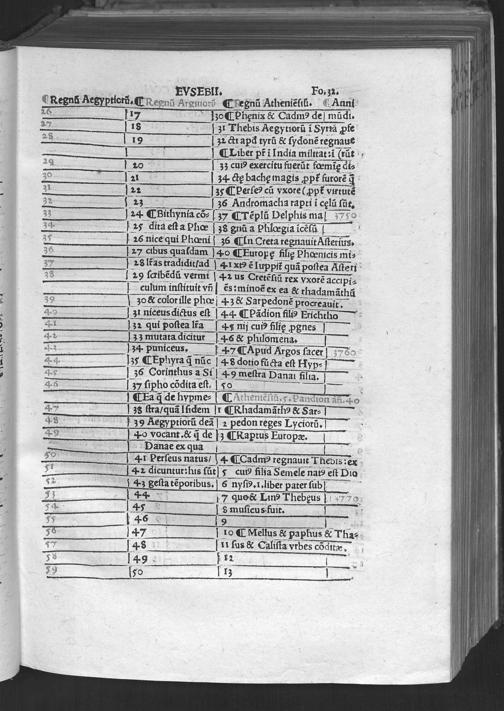 EVSEBII. Fo.32.
¶Regnū Aegyptiorū. ¶Regnū Argiuorū ¶Regnū Atheniēsiū. ¶Anni
26 17 30 ¶Phęnix & Cadmꝰ de mūdi.
27 18 31 Thebis Aegytiorū ī Syriā
28 19 32 apd tyrū & sydonē regnaue
¶Liber India militat:
29 20 33 exercitu fuerūt
30 21 34 bachę magis furorē
31 22 35 ¶Perseꝰ cū vxore virtutē
32 23 36 Andromacha rapti ī cęlū sūt.
33 24 ¶Bithynia cō- 37 ¶Tēplū Delphis ma 3750
34 25 dita est a Phœ 38 gnū a Phlœgia īcēsū
35 26 nice qui Phœni 36 ¶In Creta regnauit Asterius.
36 27 cibus quasdam 40 ¶Europę filię Phœnicis mi-
37 28 lras tradidit/ad 41 Iuppiť quā postea Asteri
38 29 scribēdū vermi 42 us Cretēsiū rex vxorē accipi-
culum instituit ēs: minoē ex ea & rhadamāthū
39 30 & color ille phœ 43 & Sarpedonē procreauit.
40 31 niceus dictus est 44 ¶Pādion filiꝰ Erichtho
41 32 qui postea lra 45 nij cuiꝰ filię ,pgnes
42 33 mutata dicitur 46 & philomena.
43 34 puniceus. 47 ¶Apud Argos sacer 3760
44 35 ¶Ephyra q̄ nūc 48 dotio fūcta est Hyp-
45 36 Corinthus a Si 49 mestra Danai filia.
46 37 sipho cōdita est. 50
¶Ea q̄ de hypme- ¶Atheniēsiū.5. Pandion añ.40
47 38 stra/quā Isidem 1 ¶Rhadamāthꝰ & Sar-
48 39 Aegyptiorū deā 2 pedon reges Lyciorū.
49 40 vocant. & q̄ de 3 ¶Raptus Europæ.
Danae ex qua
50 41 Perseus natus/ 4 ¶Cadmꝰ regnauit Thebis: ex
51 42 dicuntur: hus sūt 5 cuiꝰ filia Semele natꝰ est Dio
52 43 gesta tēporibus. 6 nysiꝰ.i. liber pater sub
53 44 7 quo & Linꝰ Thebęus 3770
54 45 8 musicus fuit.
55 46 9
56 47 10 ¶Mellus & paphus & Tha-
57 48 11 sus & Calista vrbes cōditæ.
58 49 12
59 50 13